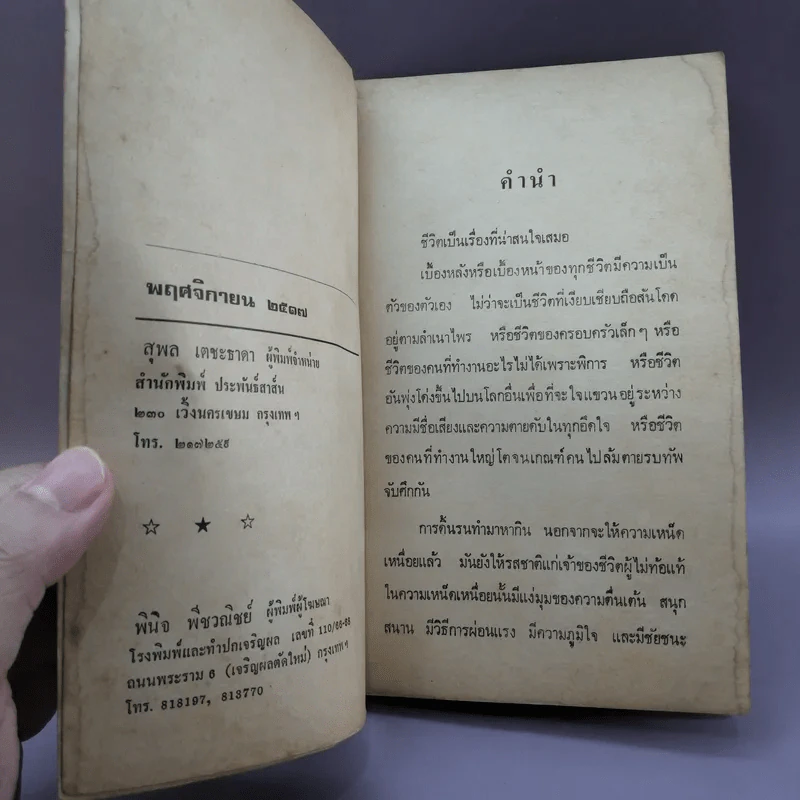 พฤศจิกายน ๒๕๑๗
สุพล เตชะธาดา ผู้พิมพ์จำหน่าย
สำนักพิมพ์ ประพันธ์สาส์น
๒๓๐ เวิ้งนครเขษม กรุงเทพฯ
โทร. ๒๑๗๒๕๙
☆ ★ ☆
พินิจ พืชวณิชย์ ผู้พิมพ์ผู้โฆษณา
โรงพิมพ์และทำปกเจริญผล เลขที่ 110/65-68
ถนนพระราม 6 (เจริญผลตัดใหม่) กรุงเทพฯ
โทร. 818197, 813770
คำนำ
ชีวิตเป็นเรื่องที่น่าสนใจเสมอ
เบื้องหลังหรือเบื้องหน้าของทุกชีวิตมีความเป็น
ตัวของตัวเอง ไม่ว่าจะเป็นชีวิตที่เงียบเชียบถือสันโดด
อยู่ตามลำเนาไพร หรือชีวิตของครอบครัวเล็กๆ หรือ
ชีวิตของคนที่ทำงานอะไรไม่ได้เพราะพิการ หรือชีวิต
อันพุ่งโด่งขึ้นไปบนโลกอื่นเพื่อที่จะใจแขวนอยู่ระหว่าง
ความมีชื่อเสียงและความตายดับในทุกอึดใจ หรือชีวิต
ของคนที่ทำงานใหญ่โตจนเกณฑ์คนไปล้มตายรบทัพ
จับศึกกัน
การดิ้นรนทำมาหากิน นอกจากจะให้ความเหน็ด
เหนื่อยแล้ว มันยังให้รสชาติแก่เจ้าของชีวิตผู้ไม่ท้อแท้
ในความเหน็ดเหนื่อยนั้นมีแง่มุมของความตื่นเต้น สนุก
สนาน มีวิธีการผ่อนแรง มีความภูมิใจ และมีชัยชนะ